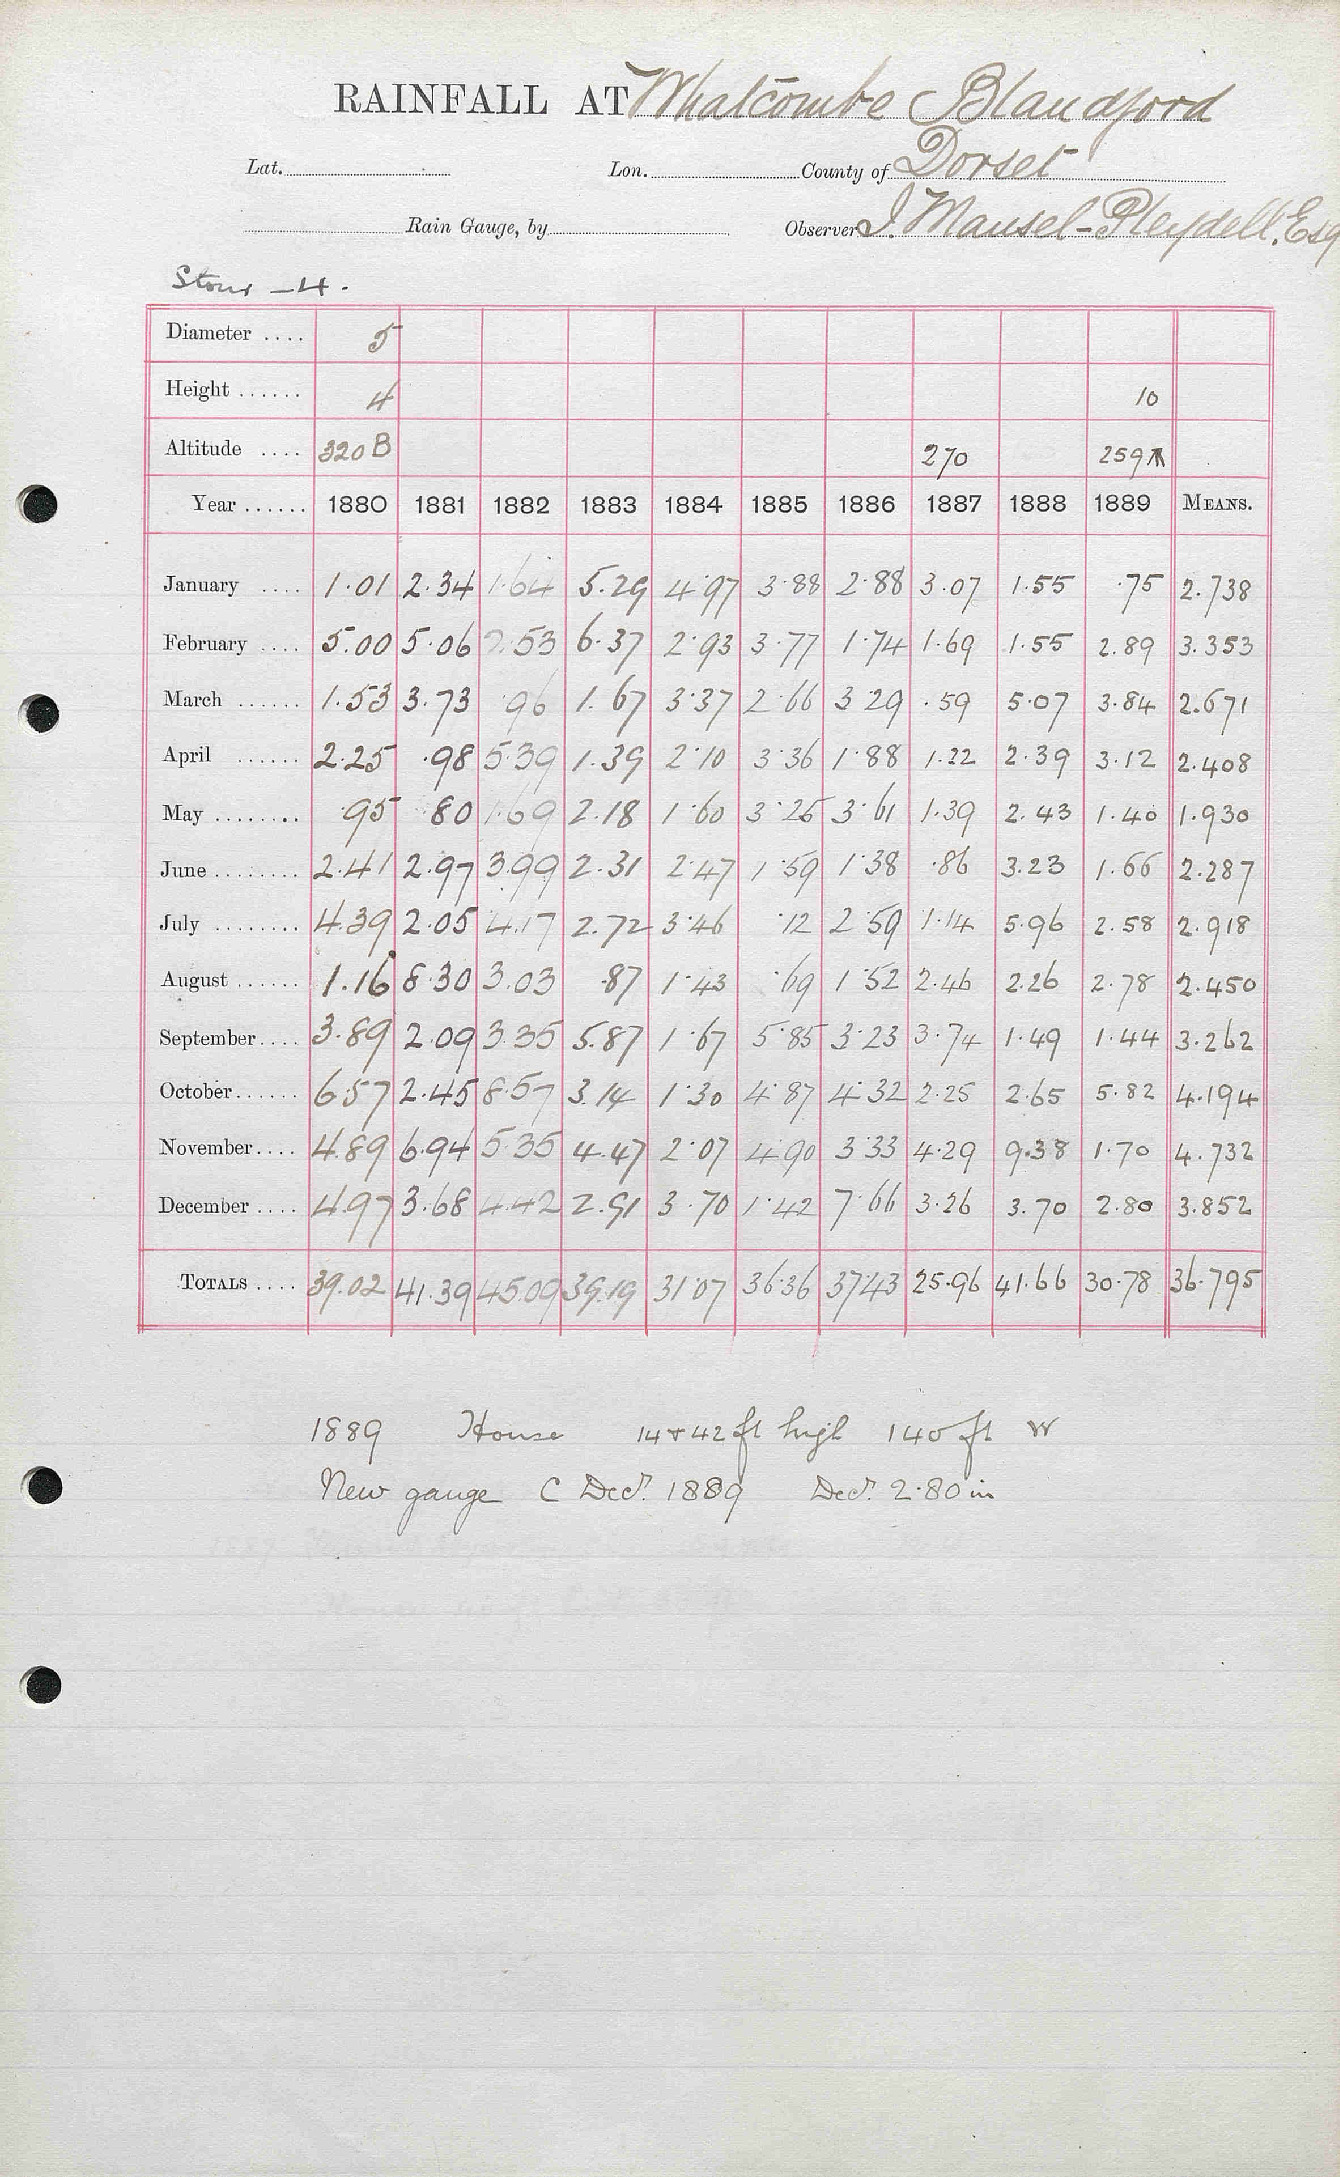 RAINFALL AT Whatcombe Blandford
Lat. Lon. County of Dorset
Rain Gauge, by Observer J. Mansel-Pleydell, Esq
Stour - 4.
Diameter .... 5
Height ...... 4 10
Altitude .... 320 B 270 259
Year ...... 1880 1881 1882 1883 1884 1885 1886 1887 1888 1889 MEANS.
January .... 1.01 2.34 1.64 5.29 4.97 3.88 2.88 3.07 1.55 .75 2.738
February .... 5.00 5.06 2.53 6.37 2.93 3.77 1.74 1.69 1.55 2.89 3.353
March ...... 1.53 3.73 .96 1.67 3.37 2.66 3.29 .59 5.07 3.84 2.671
April ...... 2.25 .98 5.39 1.39 2.10 3.36 1.88 1.22 2.39 3.12 2.408
May ........ .95 .80 1.69 2.18 1.60 3.25 3.61 1.39 2.43 1.40 1.930
June ........ 2.41 2.97 3.99 2.31 2.47 1.59 1.38 .86 3.23 1.66 2.287
July ........ 4.39 2.05 4.17 2.72 3.46 .12 2.59 1.14 5.96 2.58 2.918
August ...... 1.16 8.30 3.03 .87 1.43 .69 1.52 2.46 2.26 2.78 2.450
September.... 3.89 2.09 3.35 5.87 1.67 5.85 3.23 3.74 1.49 1.44 3.262
October...... 6.57 2.45 8.57 3.14 1.30 4.87 4.32 2.25 2.65 5.82 4.194
November.... 4.89 6.94 5.35 4.47 2.07 4.90 3.33 4.29 9.38 1.70 4.732
December .... 4.97 3.68 4.42 2.91 3.70 1.42 7.66 3.26 3.70 2.80 3.852
TOTALS .... 39.02 41.39 45.09 39.19 31.07 36.36 37.43 25.96 41.66 30.78 36.795
1889 House 14 & 42 ft high 140 ft W
New gauge C Decr. 1889 Decr. 2.80 in